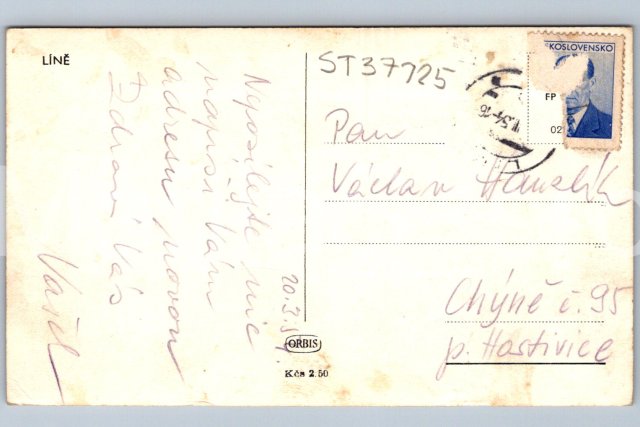 LÍNĚ
Neposílejte nic
napíši Vám
adresu novou
Zdraví Vás
Vašek
20.3.54
ORBIS
Kčs 2.50
ST37725
KOSLOVENSKO
FP
02
Pan
Václav
Chýně č. 95
p. Hostivice